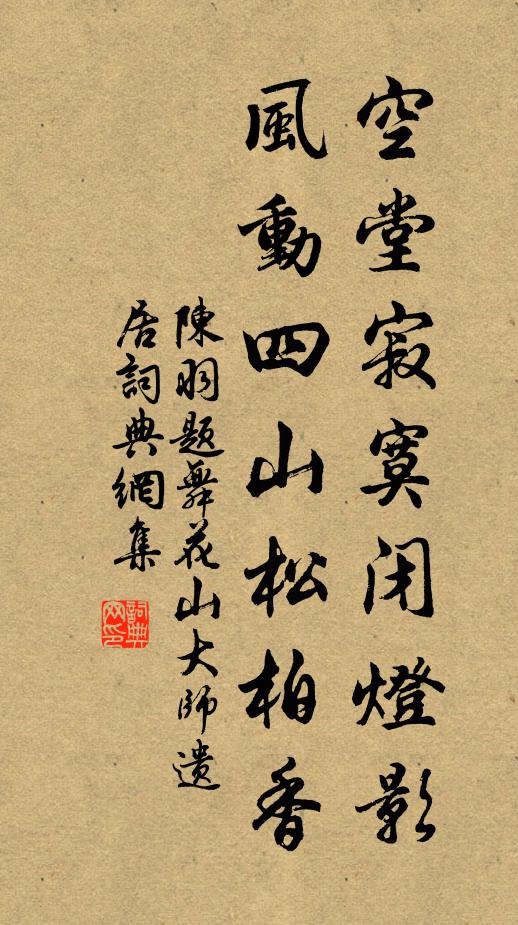 空堂寂寞闭燈影
風動四山松柏香
陳羽題舞花山大師遺
居詞典網集
詞典网印